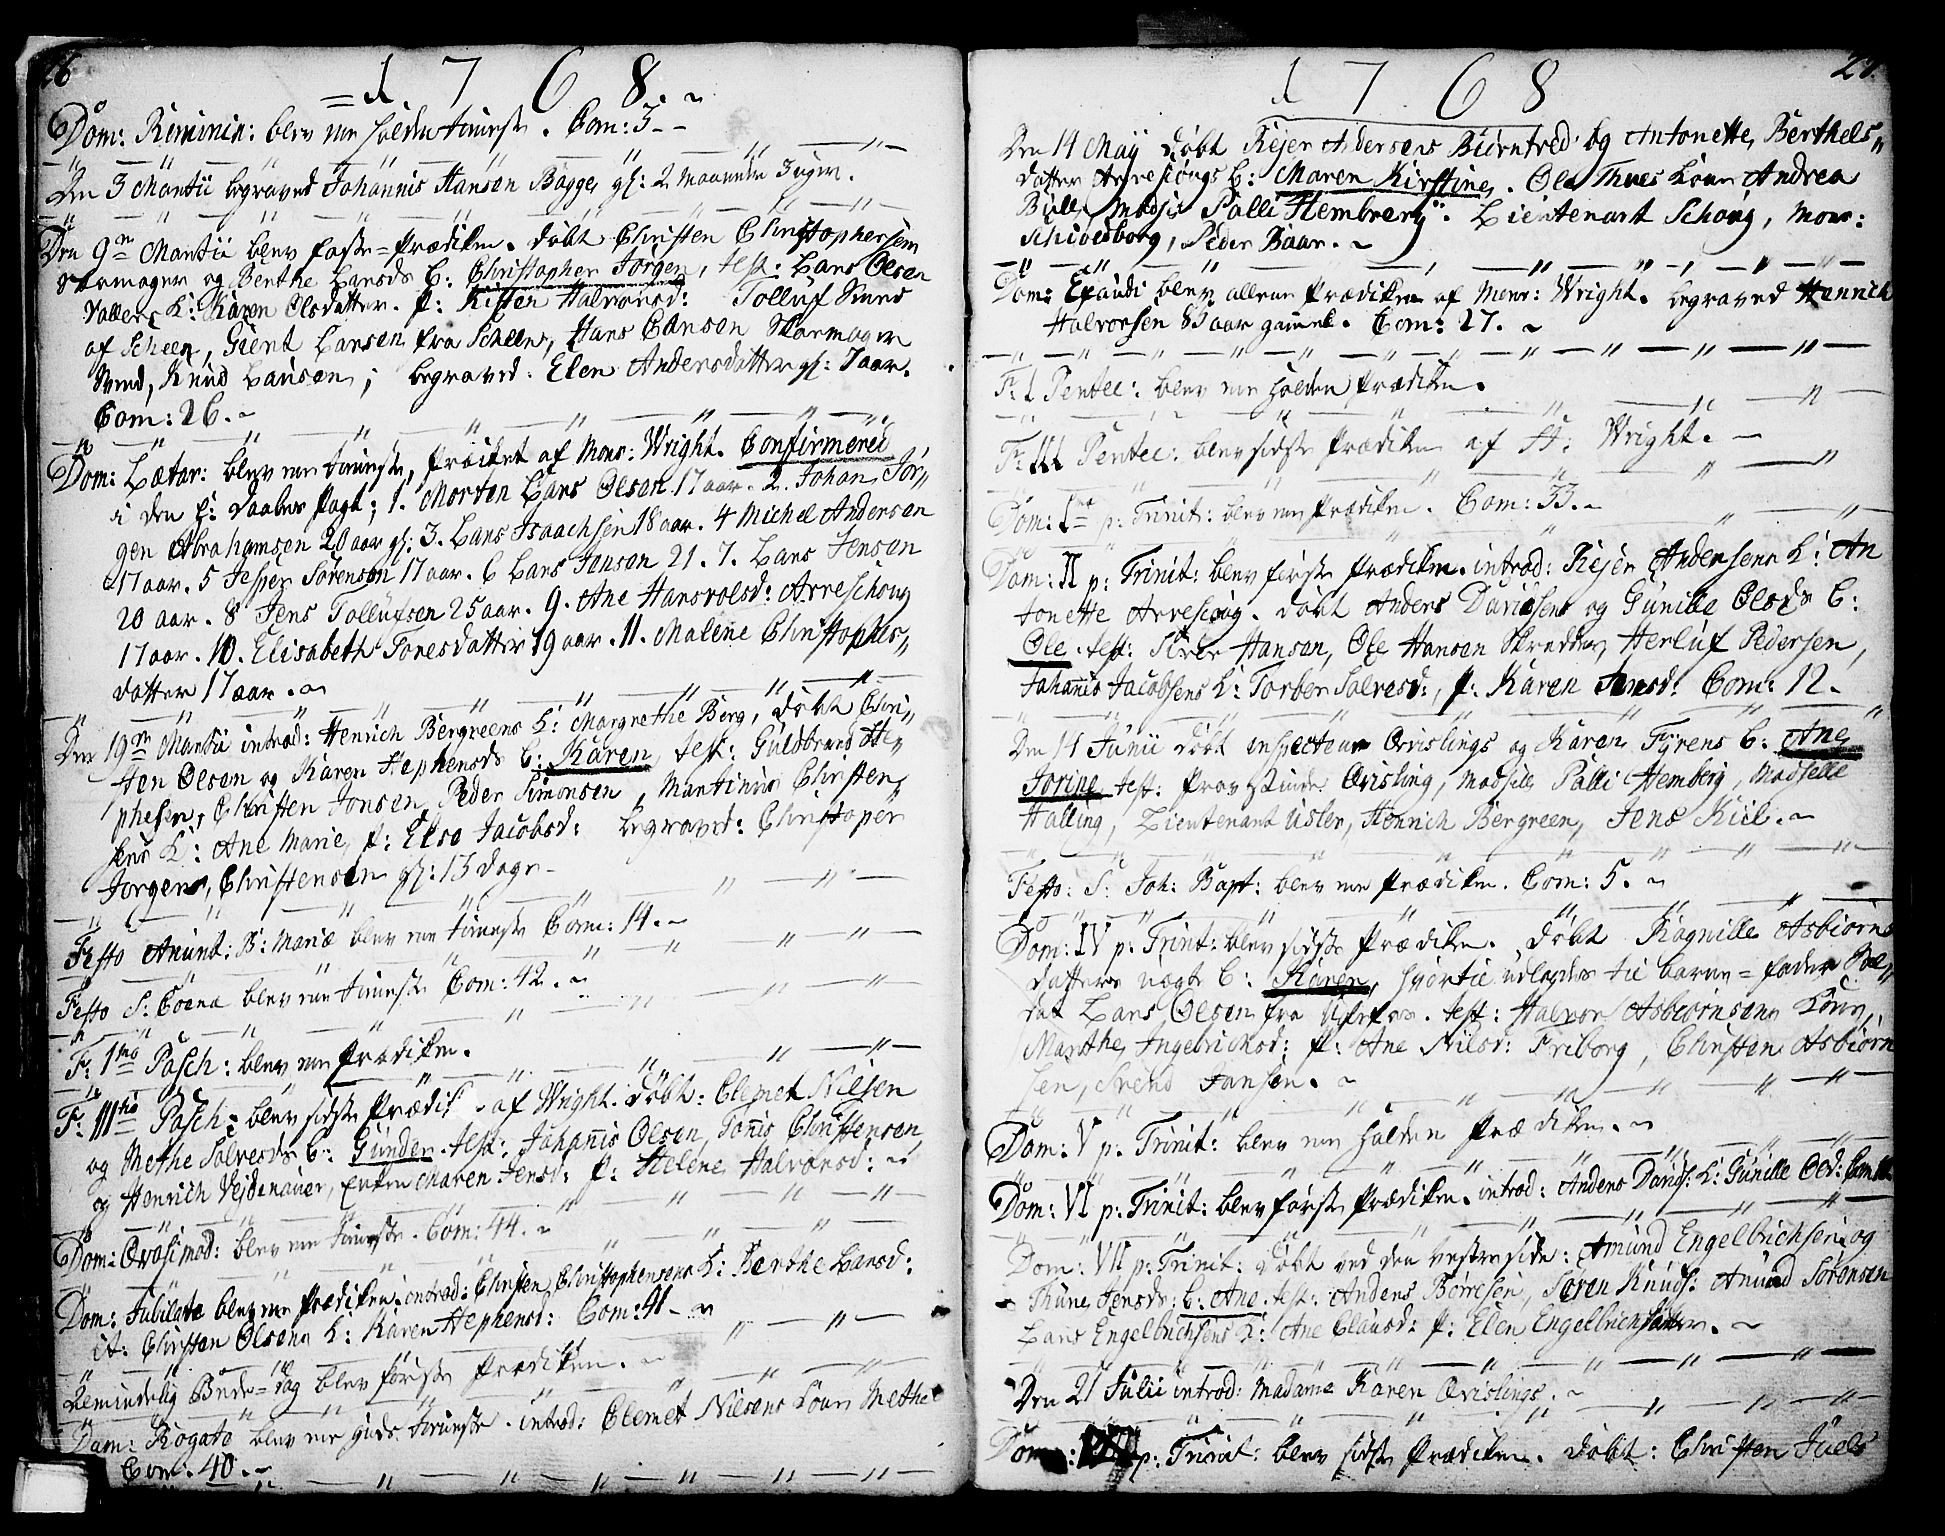 26
= 1 7 6 8. ~
Dom: Reminis: blev en holden tieniste. Com: 5 - -
Den 3 Martii begraved Johannis Hansen Bagge gl: 2 maaneder 3 uger.
Den 9de Martii blev faste-Prædiken. døbt Christen Christophersen
Skomager og Berthe Larsds B: Christopher Jørgen, test: Lars Olsen
Vallers K: Karen Olsdatter. P: Kisten Halvorsd: Tolluf Svend
af Scheen, Giert Larsen fra Scheen, Hans Hansen Skomager
Svend, Knud Larsen; begraved. Elen Andersdatter gl: 7 aar.
Com: 26. ~
Dom: Lætar: blev en tieniste, Præiket af Mons: Wright. Confirmered
i den h: daabes Pagt; 1. Morten Lars Olsen 17 aar. 2. Johan Jør„
gen Abrahamsen 20 aar gl: 3. Lars Isaachsen 18 aar. 4 Michel Andersen
17 aar. 5 Jesper Sørensen 17 aar. 6 Lars Jonson 21. 7. Lars Jensen
20 aar. 8 Jens Tollufsen 25 aar. 9. Ane Hansvolsd: Arreschoug
17 aar. 10. Elisabeth Toresdatter 19 aar. 11. Malene Christophers„
datter 17 aar. ~
Den 19de Martii introd: Henrich Bergreens K: Margrethe Berg, døbt Chri„
sten Olsen og Karen Stephensds B: Karen, test: Guldbrand Ste„
phesen, Christen Jonsen, Peder Simonsen, Martinus Christen„
sens K: Ane Marie, P: Else Jacobsd: begraved: Christoper
Jørgen, Christensen gl: 13 dage -
Festo Anunt: B: Mariæ blev en tieniste Com: 14. ~
Festo S: Coena blev en tieniste Com: 42. ~
F: 1ma Pasch: blev en Prædiken.
F: IIItia Pasch: blev sidste Prædik af Wright. døbt: Clemet Nielsen
og Methe Salvesds B: Gunder. test: Johannis Olsen, Tønis Christensen
og Henrich Vejdenauer, Enken Maren Jensd: P: Helene Halvorsd: ~
Dom: Qvasimod: blev en tieniste. Com: 44. ~
Dom: Jubilate blev en Prædiken. introd: Christen Christophersens K: Berthe Larsd:
it: Christen Olsens K: Karen Stephensd: Com: 41 - ~
Almindelig Beede-dag blev første Prædiken. ~
Dom: Rogate blev en guds tieniste. introd: Clemet Nielsens Koun Methe
Com: 40. ~
27.
1 7 6 8
Den 14 Maij døbt Rejer Andersens Biørntred og Antonette, Berthels„
datter Arreschougs B: Maren Kirstine. Ole Thues Koun Andrea
Bølle, Madsle Palli Hemberg. Lieutenant Schoug, Mons:
Schivesborg, Peder Baar. ~
Dom: Exaudi blev allene Prædiken af Mons: Wright. begraved Henrich
Halvorsen 83 aar gammel. Com: 27. ~
F: I Pentec: blev en holden Prædiken.
F: III Pentec: blev sidste Prædiken af H: Wright. -
Dom: 1ma p: Trinit: blev en Prædiken. Com: 33. ~
Dom: II p: Trinit: blev første Prædiken. introd: Rejer Andersens K: An
tonette Arreschoug. døbt Anders Davidsens og Gunille Olsds B:
Ole. test: Hansen, Ole Hansen Skredder, Herluf Pedersen,
Johanis Jacobsens K: Torber Salvesd:, P: Karen Jensd: Com: 12.
Den 11 Junii døbt inspecteur Qvislings og Karen Fyrens B: Ane
Jorine test: Provstinde Qvisling, Madselle Palli Hemberg, Madselle
Halling, Lieutenant Usler, Henrich Bergreen, Jens Kiil. ~
Festo: S: Joh: Bapt: blev en Prædiken. Com: 5. ~
Dom: IV p: Trint: blev sidste Prædiken. døbt Ragnille Asbiørns
datters uægt B: Karen, hvortil udlagdes til barne-fader
dat Lars Olsen fra. test: Halvor Asbiørnsens Koun,
Marthe Ingebrichsd: P: Ane Nilsd: Friborg, Christen Asbiørn
sen, Svend Jansen. ~
Dom: V p: Trinit: blev en holden Prædiken. ~
Dom: VI p: Trinit: blev første Prædiken. introd: Anders Davids: K: Gunille Olsd:
Dom: VII p: Trinit: døbt ved den vestre side: Amund Engelbrichsen og
Thune Jensds: B: Ane. test: Anders Børresen, Søren Knuds: Amund Sørensen
Lars Engelbrichsens K: Ane Clausd: P: Elen Engelbrichsdatter. ~
Den 21 Julii introd: Madame Karen Qvislings. ~
Dom: p: Trinit: blev sidste Prædiken. døbt: Christen Juels